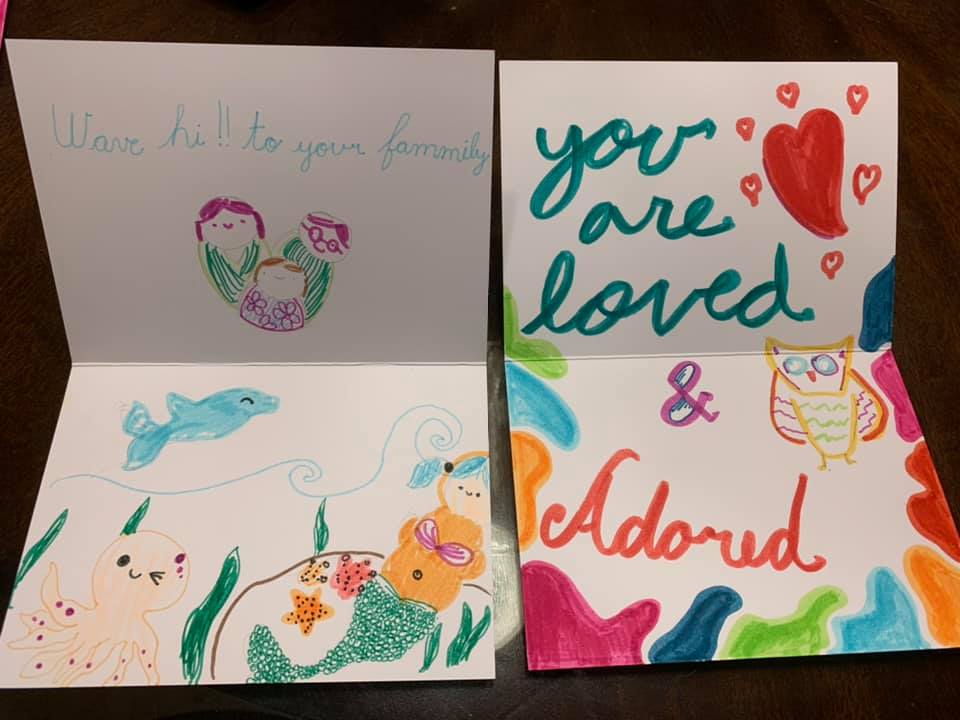 Wave hi!! to your fammily
you
are
loved
&
Adored